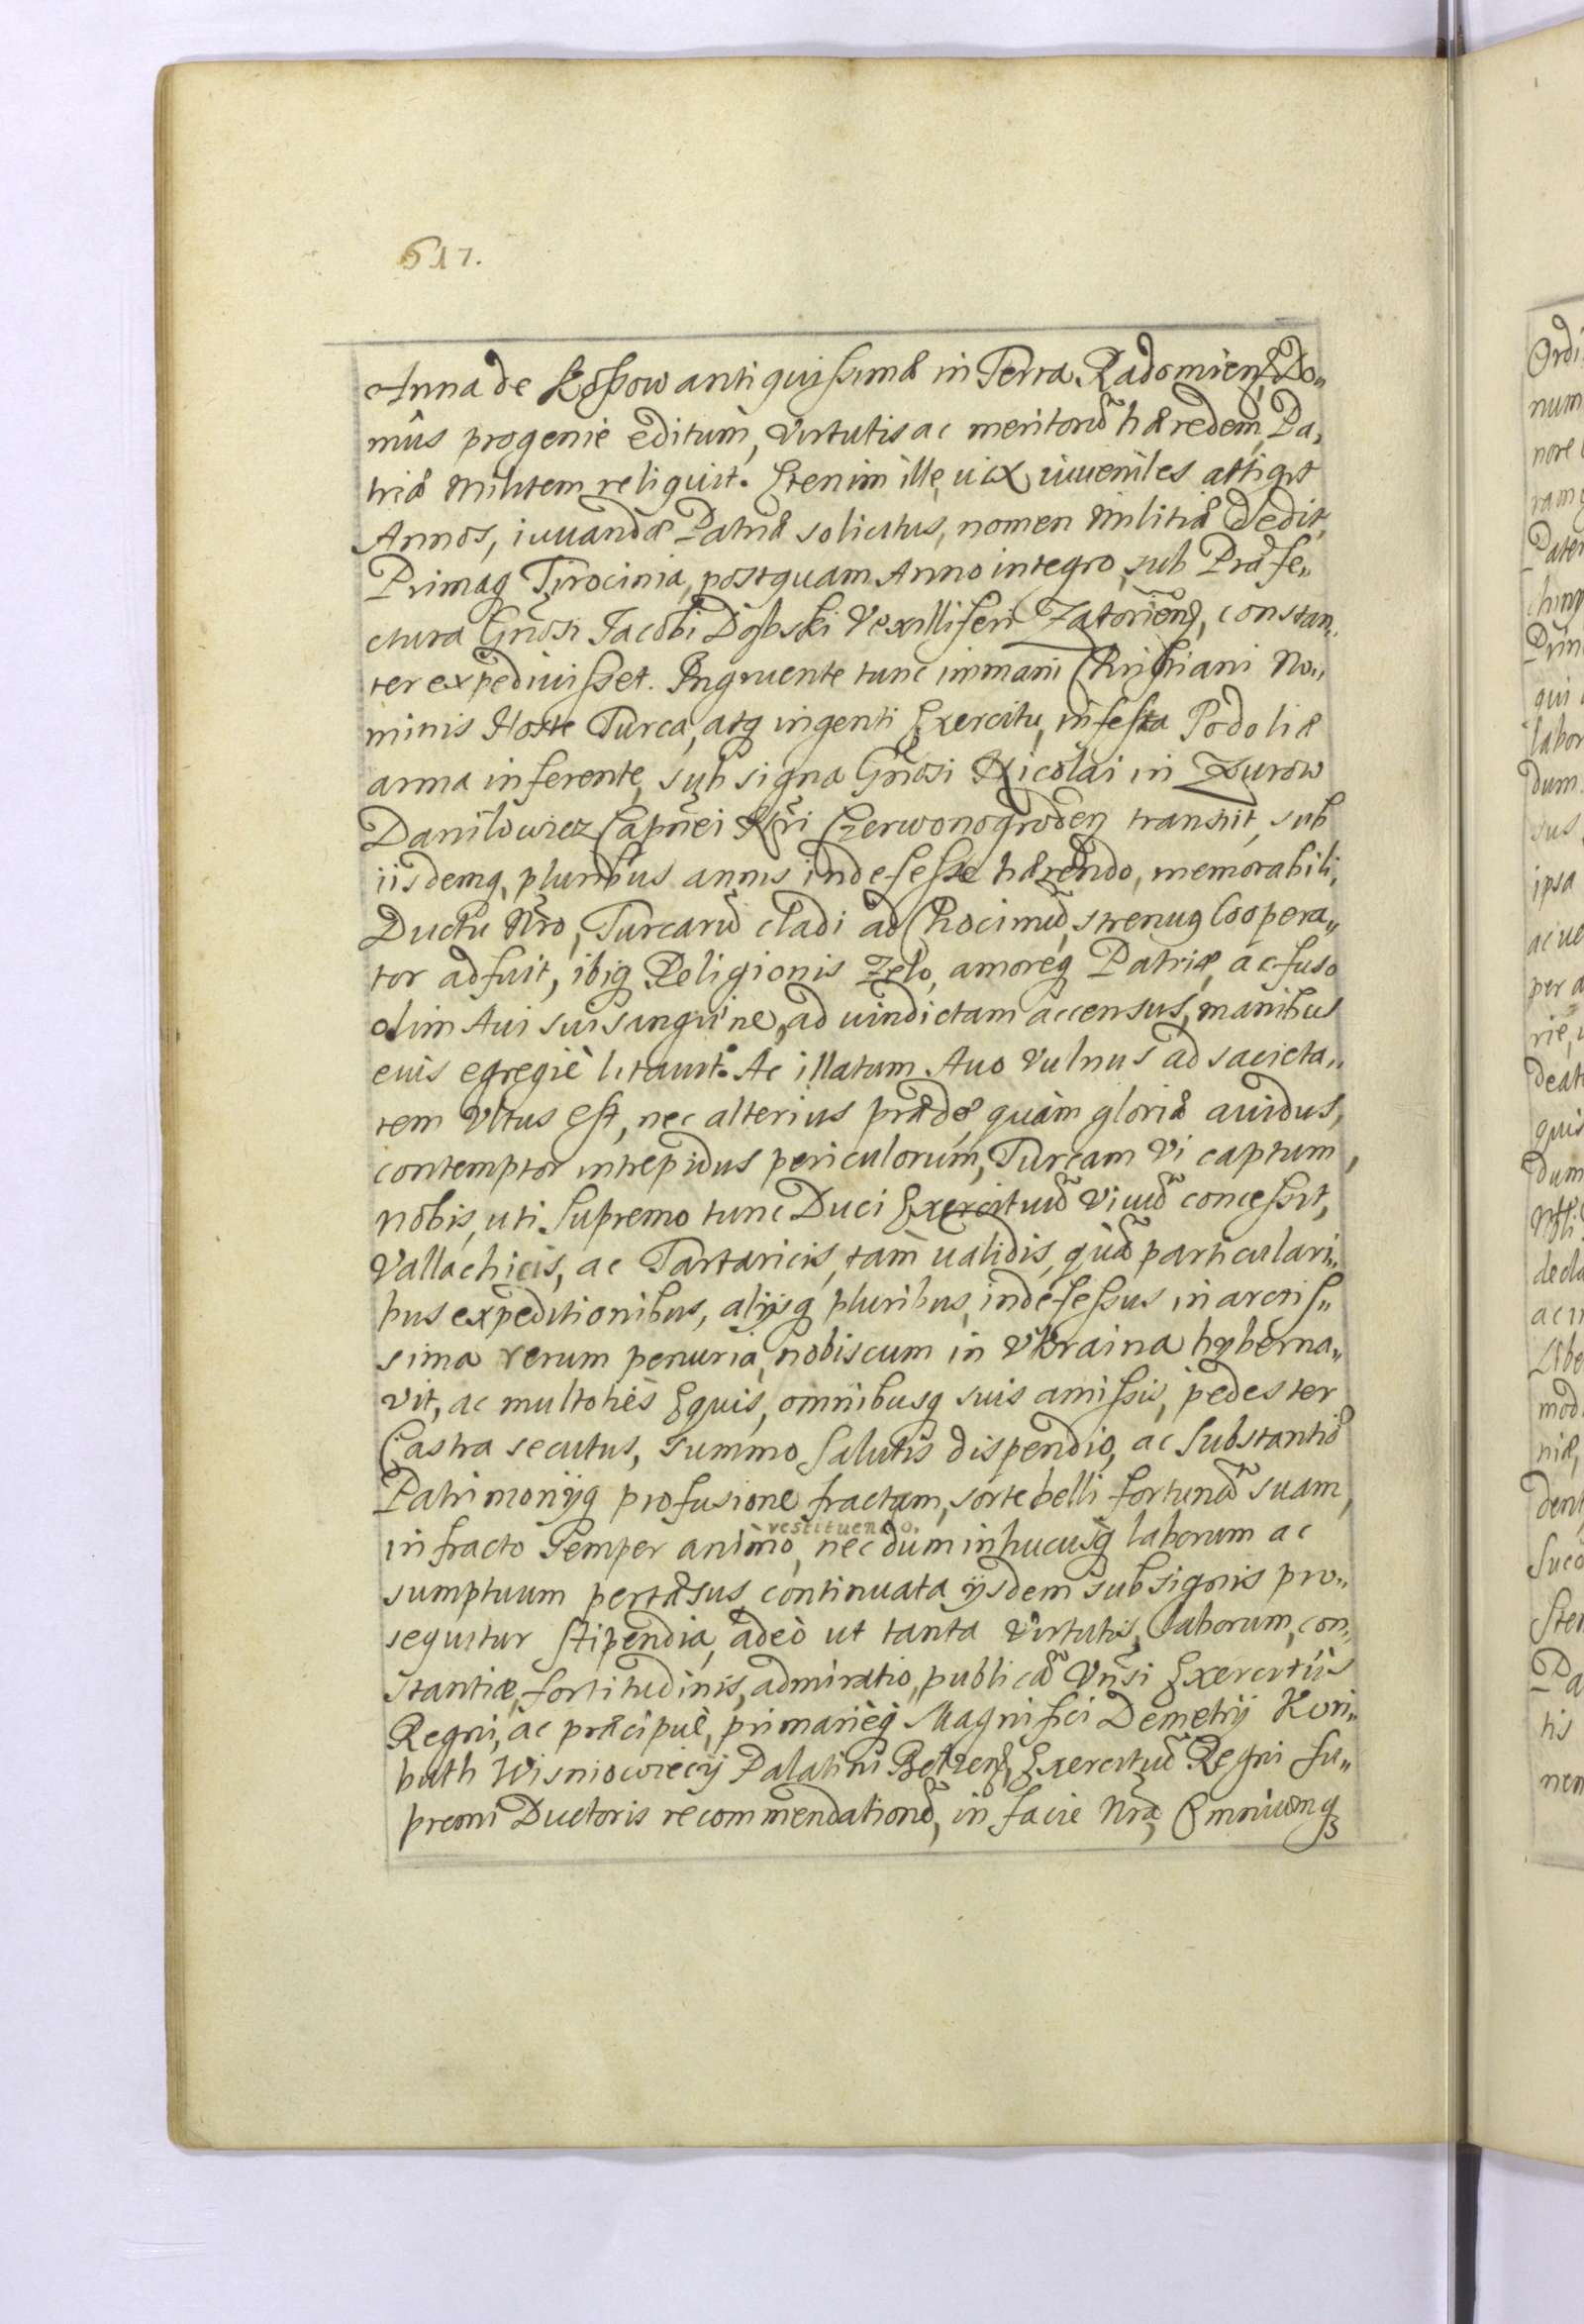 617.
Anna de Koſsow antiquiſsimæ in Terra Radomienſ, Do„
mûs progenie editum, Virtutis ac meritorũ hæredem, Pa„
triæ Militem reliquit. Etenim ille, uix iuueniles attigit
Annos, iuuandæ Patriæ solicitus, nomen Militiæ dedit,
Primaq Tirocinia, postquam Anno integro, sub Præfe„
ctura Gñosi Jacobi Dębski Vexilliferi Zatorienſ, constan„
ter expediuiſset. Ingruente tunc immani Chriſtiani No„
minis Hoste Turca, atq ingenti Exercitu, infeſta Podoliæ
arma inferente, sub signa Gñosi Nicolai in Zurow
Daniłowicz Capñei Nri Czerwonogroden transiit, sub
iisdemq, pluribus annis indefeſse hærendo, memorabili,
Ductu Nro, Turcarũ cladi ad Chocimũ, strenuq Coopera„
tor adfuit, ibiq Religionis Zelo, amoreq Patriæ, ac fuso
olim Aui sui sanguine, ad uindictam accensus, manibus
euis egregiè litauit. Ac illatum Auo Vulnus ad sacieta„
tem Vltus eſt, nec alterius prædæ, quàm gloriæ auidus,
contemptor intrepidus periculorum, Turcam Vi captum,
nobis, uti Supremo tunc Duci Exercituũ Viuũ conceſsit,
Vallachicis, ac Tartaricis, tam ualidis, quã particulari„
bus expeditionibus, alijsq pluribus, indefeſsus in arctiſ„
sima rerum penuria, nobiscum in Vkraina hyberna„
vit, ac multotiès Equis, omnibusq suis amiſsis, pedester
Castra secutus, summo Salutis dispendio, ac Substantiæ
Patrimonijq profusione fractam, sorte belli fortunã suam,
restituendo.
infracto Semper animo, nec dum in hucusq laborum ac
sumptuum pertæsus, continuata ijsdem sub signis pro„
sequitur Stipendia, adeò ut tanta Virtutis, laborum, con„
stantiæ, fortitudinis, admiratio, publicã Vñsi Exercitûs
Regni, ac præcipuè, primarièq Magnifici Demetrij Kori„
buth Wisniowiecij Palatini Belzenſ, Exercituũ Regni Su„
premi Ductoris recommendationẽ, in facie Nra, Omniumq